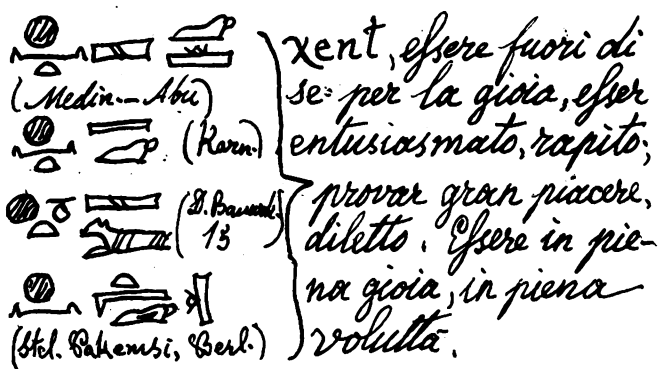 (Medin.-Abu)
(Karn.)
(D.
13)
(Stel. Berl.)
χent, essere fuori di
se per la gioia, esser
entusiasmato, rapito;
provar gran piacere,
diletto. Essere in pie-
na gioia, in piena
voluttà.